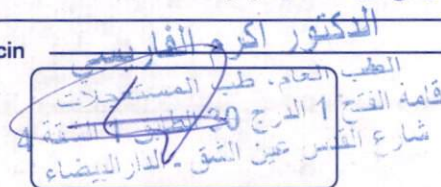 cin
الدكتور اكرم الفاريسي
الطب العام، طب المستعجلات
قامة الفتح 1 الدرج 30 الطابق 1 الشقة 4
شارع القدس عين الشق - الدار البيضاء